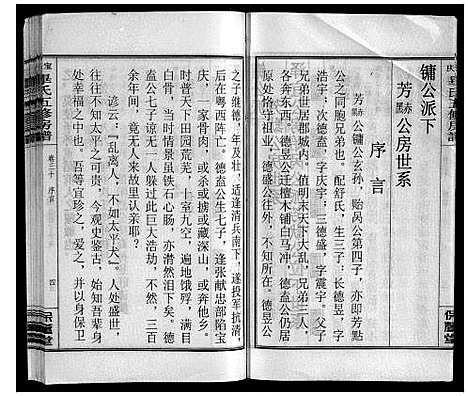 镛公派下
芳 赤黑 公房世系
序言
芳 赤黑 公镛公玄孙，贻岗公第四子，亦即芳黯
公之同胞兄弟也。配舒氏，生三子：长德昱，字
震宇。次德盍，字庆宇。三德盛，字震宇。父子
兄弟世居郡城内。值明末天下大乱，兄弟三人，
各奔东西。德昱公迁檀木铺白马冲，德盍公仍居
原处恪守祖业，德盛公往外，不知所在。德昱公
之子继德，年及壮，适逢清兵南下，遂投军抗清，
后在粤西阵亡。德盍公生七子，逢张献忠部陷宝
庆，一家骨肉，或杀或掳或藏深山，或奔他乡。
时普天下田园荒芜，十室九空，遍地饿殍，满目
白骨，当时情景虽铁石心肠，亦潸然泪下矣。德
盍公七子谅无一人躲过此巨大浩劫，不然，三百
余年间，竟无人来故里认亲耶？
谚云：『乱离人，不如太平犬』。人处盛世，
不知太平之可贵，今观史鉴古，始知吾辈身
处幸福之中也。吾等宜珍之，爱之，并以身保卫
宝
氏五修房谱
卷三十 序言
四
保 堂